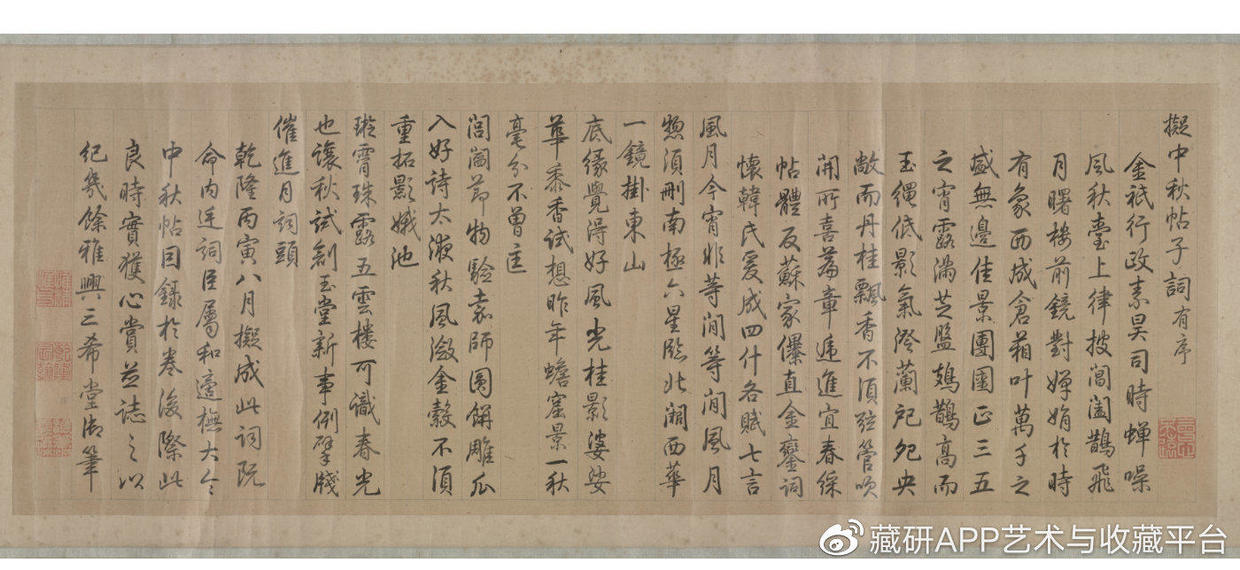 擬中秋帖子詞有序
金祇行政素昊司時蟬噪
風秋臺上律披閶闔鵲飛
月曙樓前鏡對嬋娟於時
有象西成倉箱叶萬千之
盛無邊佳景團圞正三五
之宵露滿芝盤鳷鵲高而
玉繩低影氣澄蘭戺兜央
敞而丹桂飄香不須弦管喚
開所喜篇章遞進宜春綵
帖體反蘇家儤直金鑾詞
懷韓氏爰成四什各賦七言
風月今宵非等閒等閒風月
惣須刪南極六星臨北闕西華
一鏡掛東山
底緣覺得好風光桂影婆娑
華黍香試想昨年蟾窟景一秋
毫分不曾庄
閶闔節物驗嘉師圓餅雕瓜
入好詩太液秋風激金縠不須
重拓影娥池
璇霄珠露五雲樓可識春光
也讓秋試創玉堂新事例擘牋
催進月詞頭
乾隆丙寅八月擬成此詞既
命內廷詞臣屬和邊撫大令
中秋帖因錄於卷後際此
良時實獲心賞並誌之以
紀幾餘雅興三希堂御筆
藏研APP艺术与收藏平台